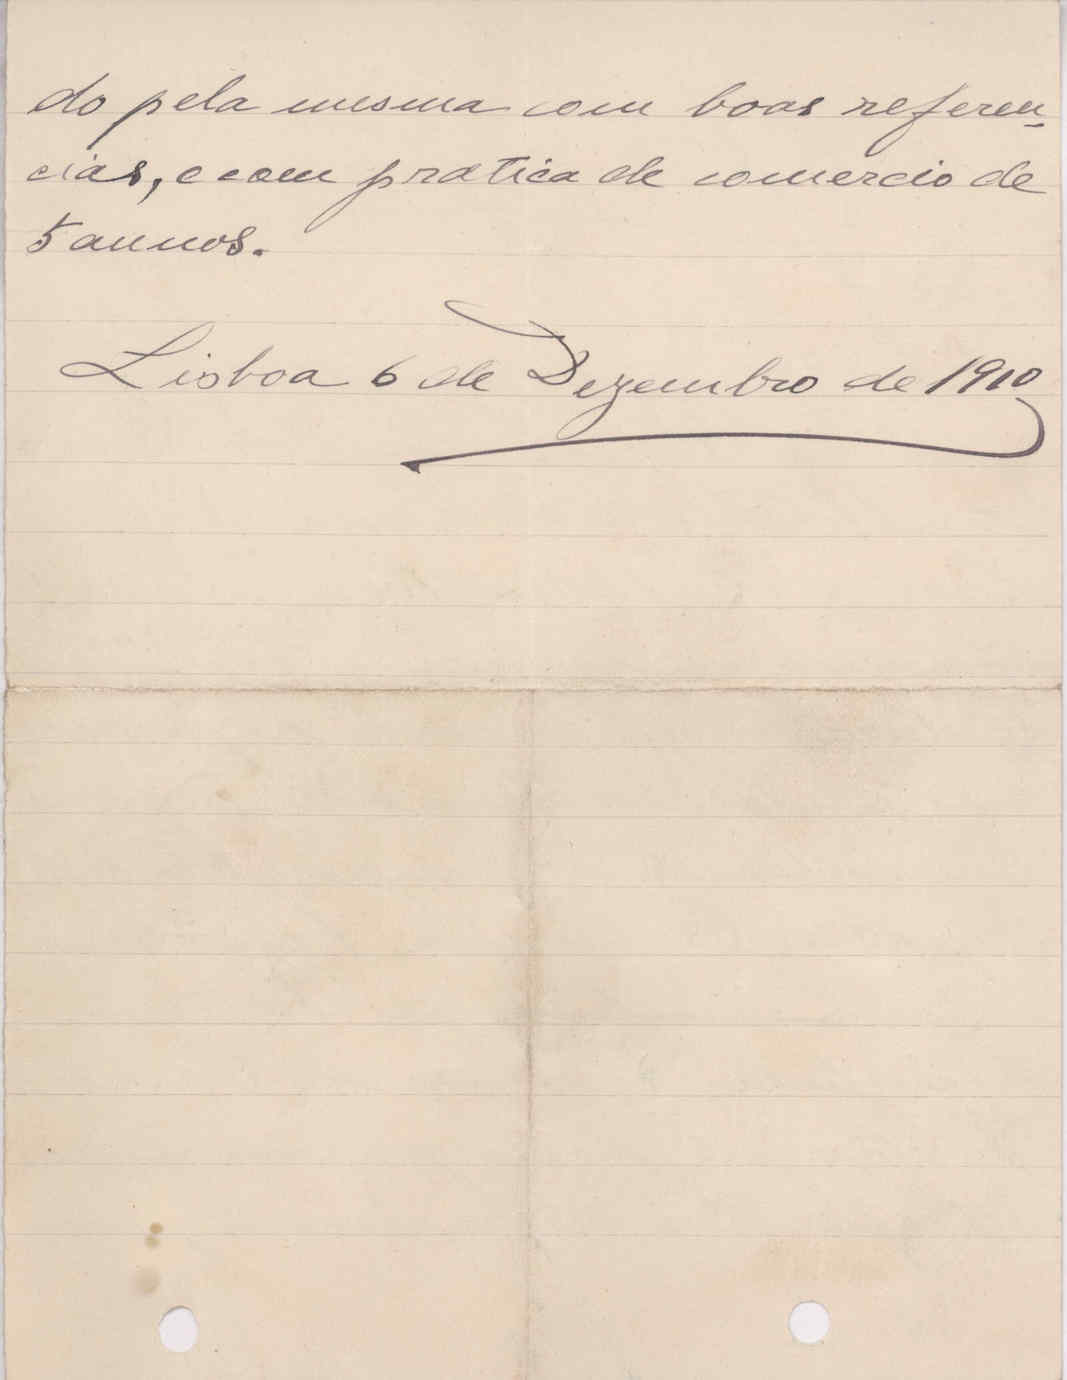 do pela mesma com boas referen-
cias, e com pratica de comercio de
5 annos.
Lisboa 6 de Dezembro de 1910